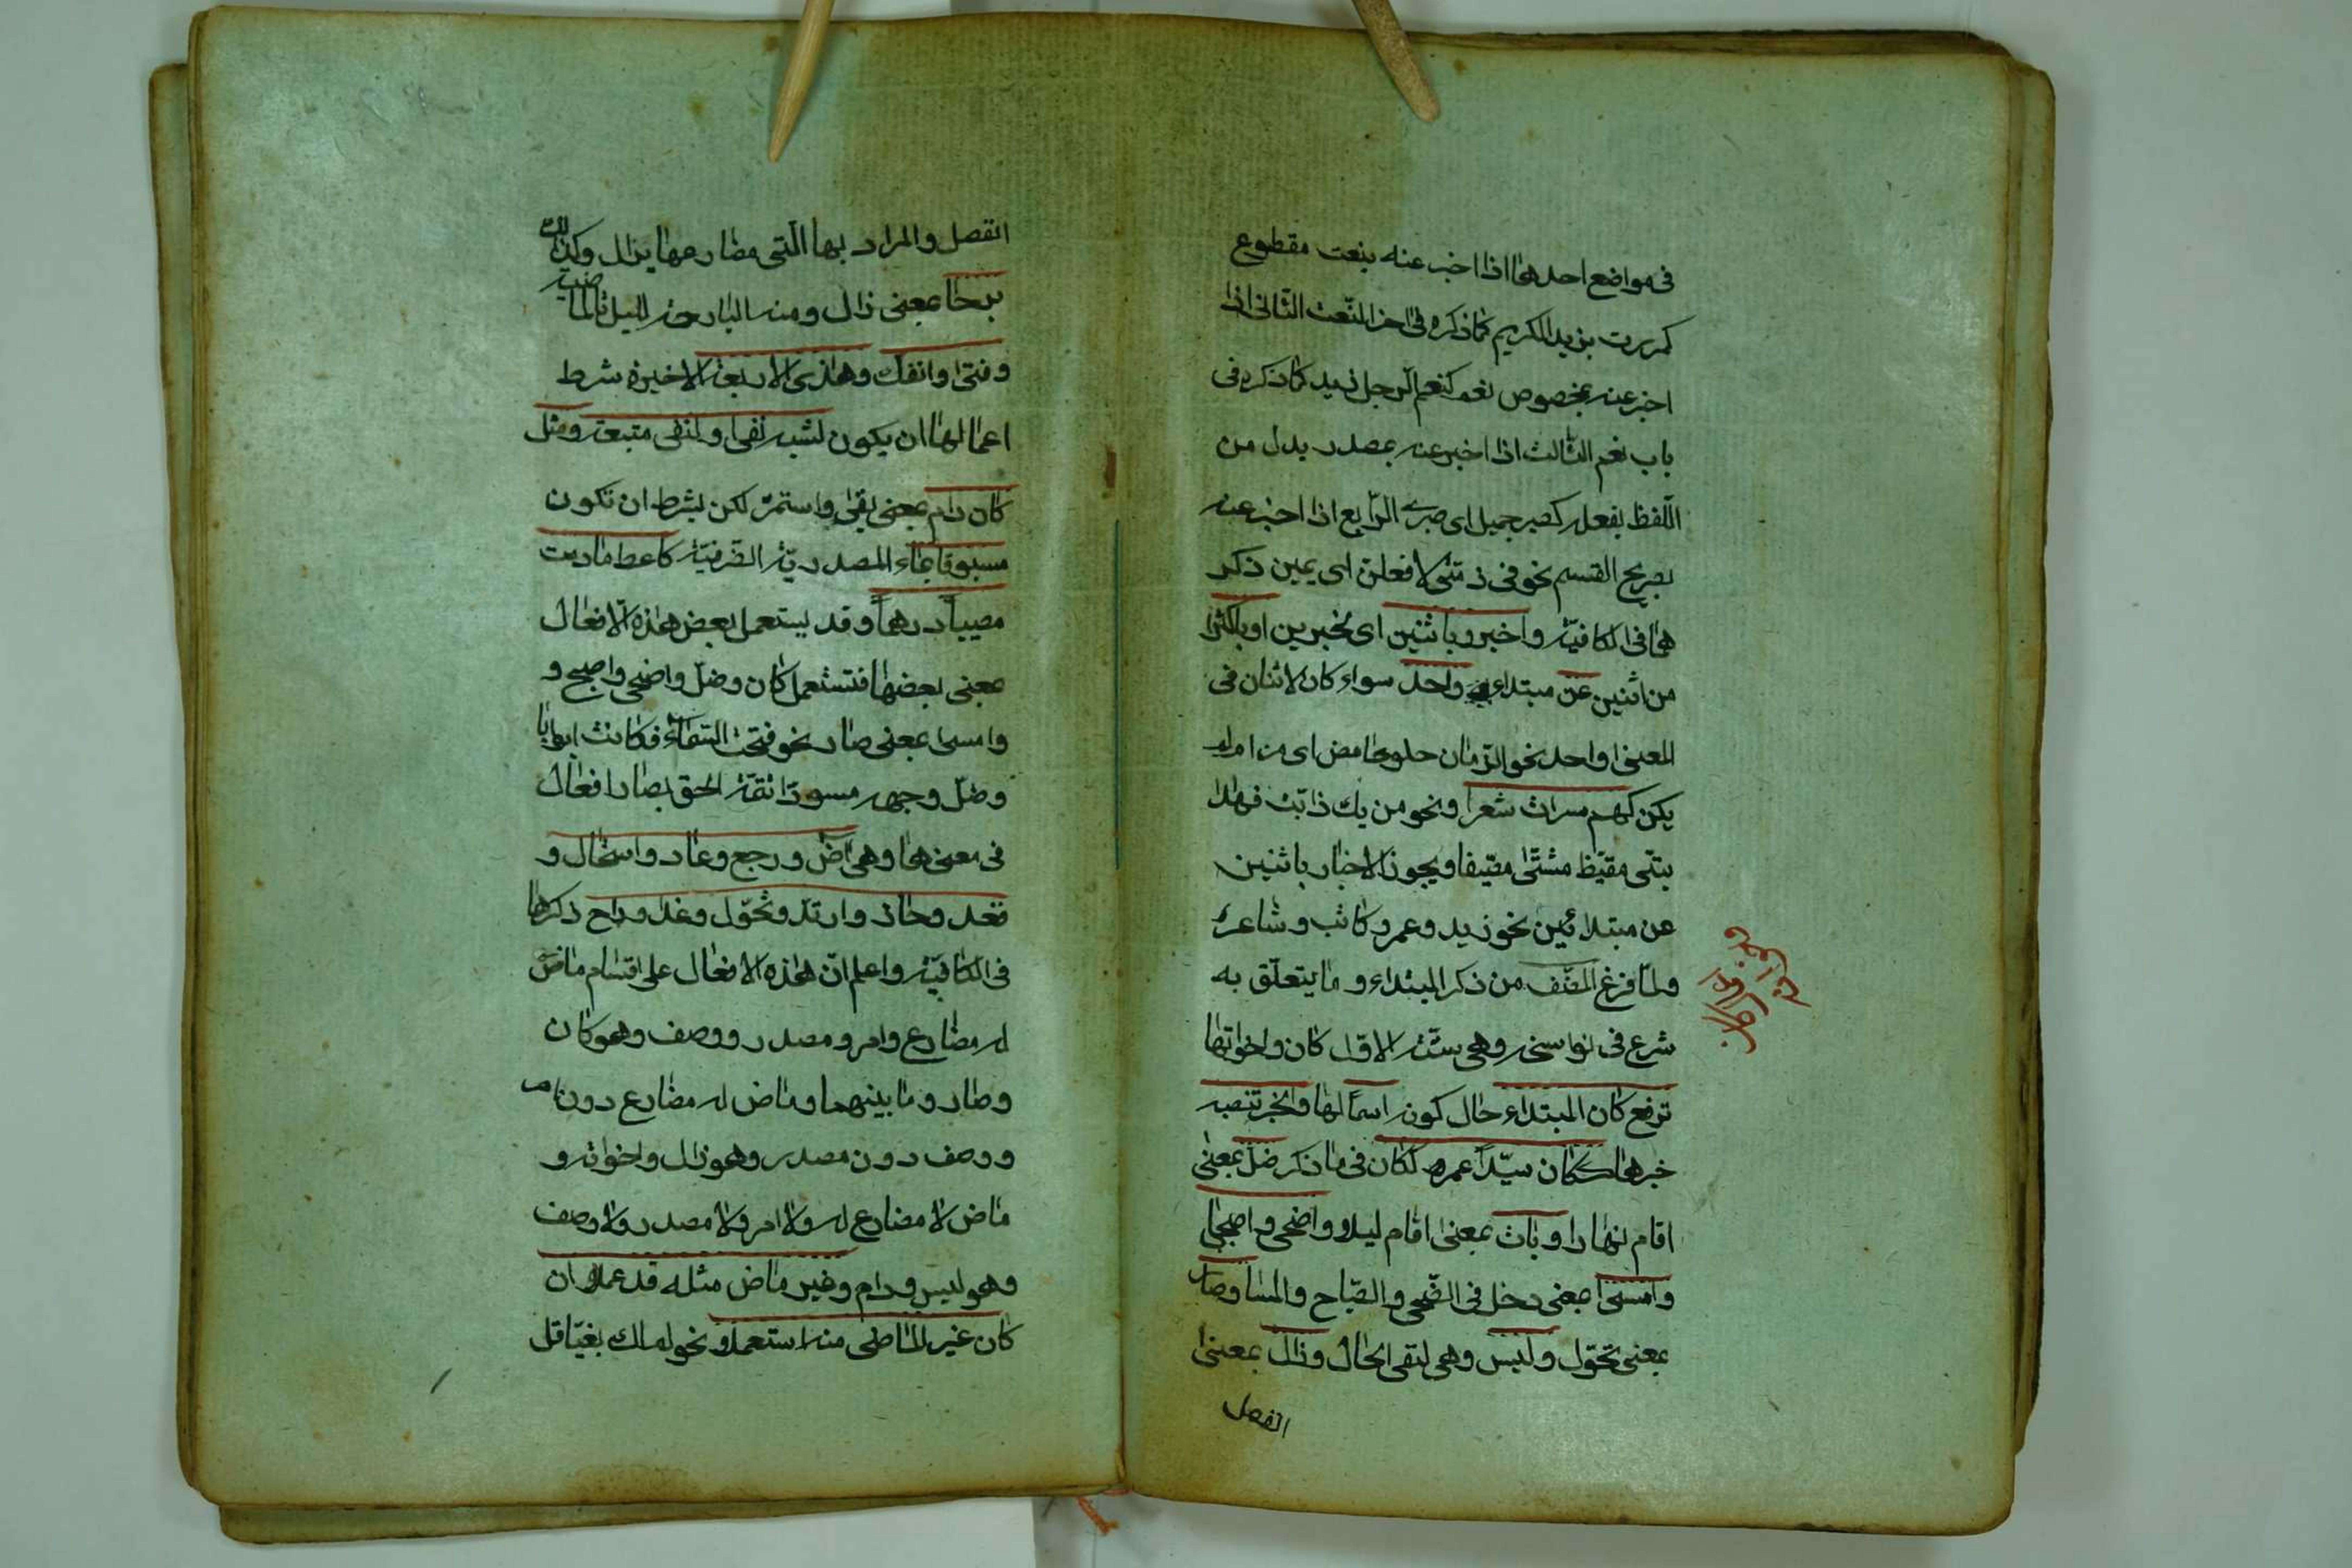 فى مواضع احدها اذا اخبر عنه بنعت مقطوع
كمررت بزيد الكريم كما ذكره فى اخر النّعت الثّانى اذا
اخبر عنه بمخصوص نعم كنعم الرجل زيد كما ذكره فى
باب نعم الثّالث اذا اخبر عنه بمصدر بدل من
اللّفظ بفعله كصبر جميل اى صبرى الرّابع اذا اخبر عنه
بصريح القسم نحو فى ذمّتى لافعلن اى يمين ذكر
ها فى الكافيّة واخبروا باثنين اى بخبرين او باكثرا
من اثنين عن مبتداء واحد سواء كان الاثنان فى
المعنى واحد نحو الرّمان حلو حامض اى مز ام لم
يكن كهم سراة شعرا ونحو من يك ذا بتّ فهذا
بتّى مقيّظ مشتّى مصيّفا ويجوز الاخبار باثنين
عن مبتدائين نحو زيد وعمرو كاتب وشاعر
ولمّا فرغ المصّنف من ذكر المبتداء وما يتعلّق به
شرع فى نواسخه وهى ستّة الاوّل كان واخواتها
ترفع كان المبتداء حال كونه اسمًا لها والخبر تنصبه
خبرها ككان سيّدًا عمره ككان فى ما ذكر ضلّ بمعنى
اقام نهارا وبات بمعنى اقام ليلا واضحى واصبحا
وامسى بمعنى دخل فى الضّحى والصّباح والمسا وصار
بمعنى تحوّل وليس وهى لنفى الحال وزال بمعنى
انفصل
انفصل والمراد بها الّتى مضارعها يزال وكذلك
برحا بمعنى زال ومنه البارحة لليلة الماضية
وفتى وانفك وهذى الاربعة الاخيرة شرط
اعمالها ان يكون لشبه نفى او لنفى متبعة ومثل
كان دام بمعنى بقى واستمرّ لكن بشرط ان تكون
مسبوقا بماء المصدريّة الظّرفيّة كاعط ما دمت
مصيبًا درهمًا وقد يستعمل بعض هذه الافعال
بمعنى بعضها فتستعمل كان وضلّ واضحى واصبح و
وامسى بمعنى صار نحو فتحت السّماء فكانت ابوابا
وضلّ وجهه مسودّا تتمّة الحق بصار افعال
فى معناها وهى اض ورجع وعاد واستحال و
قعد وحار وارتدّ وتحوّل وغدا وراح ذكرها
فى الكافيّة واعلم انّ هذه الافعال على اقسام ماض
له مضارع وامر ومصدر ووصف وهو كان
وصار وما بينهما وماض له مضارع دون امر
ووصف دون مصدر وهو زال واخواته و
ماض لا مضارع له ولا امر ولا مصدر ولا وصف
وهو ليس ودام وغير ماض مثله قد عملا ان
كان غير الماضى منه استعملا ونحو لم اك بغيّا قل